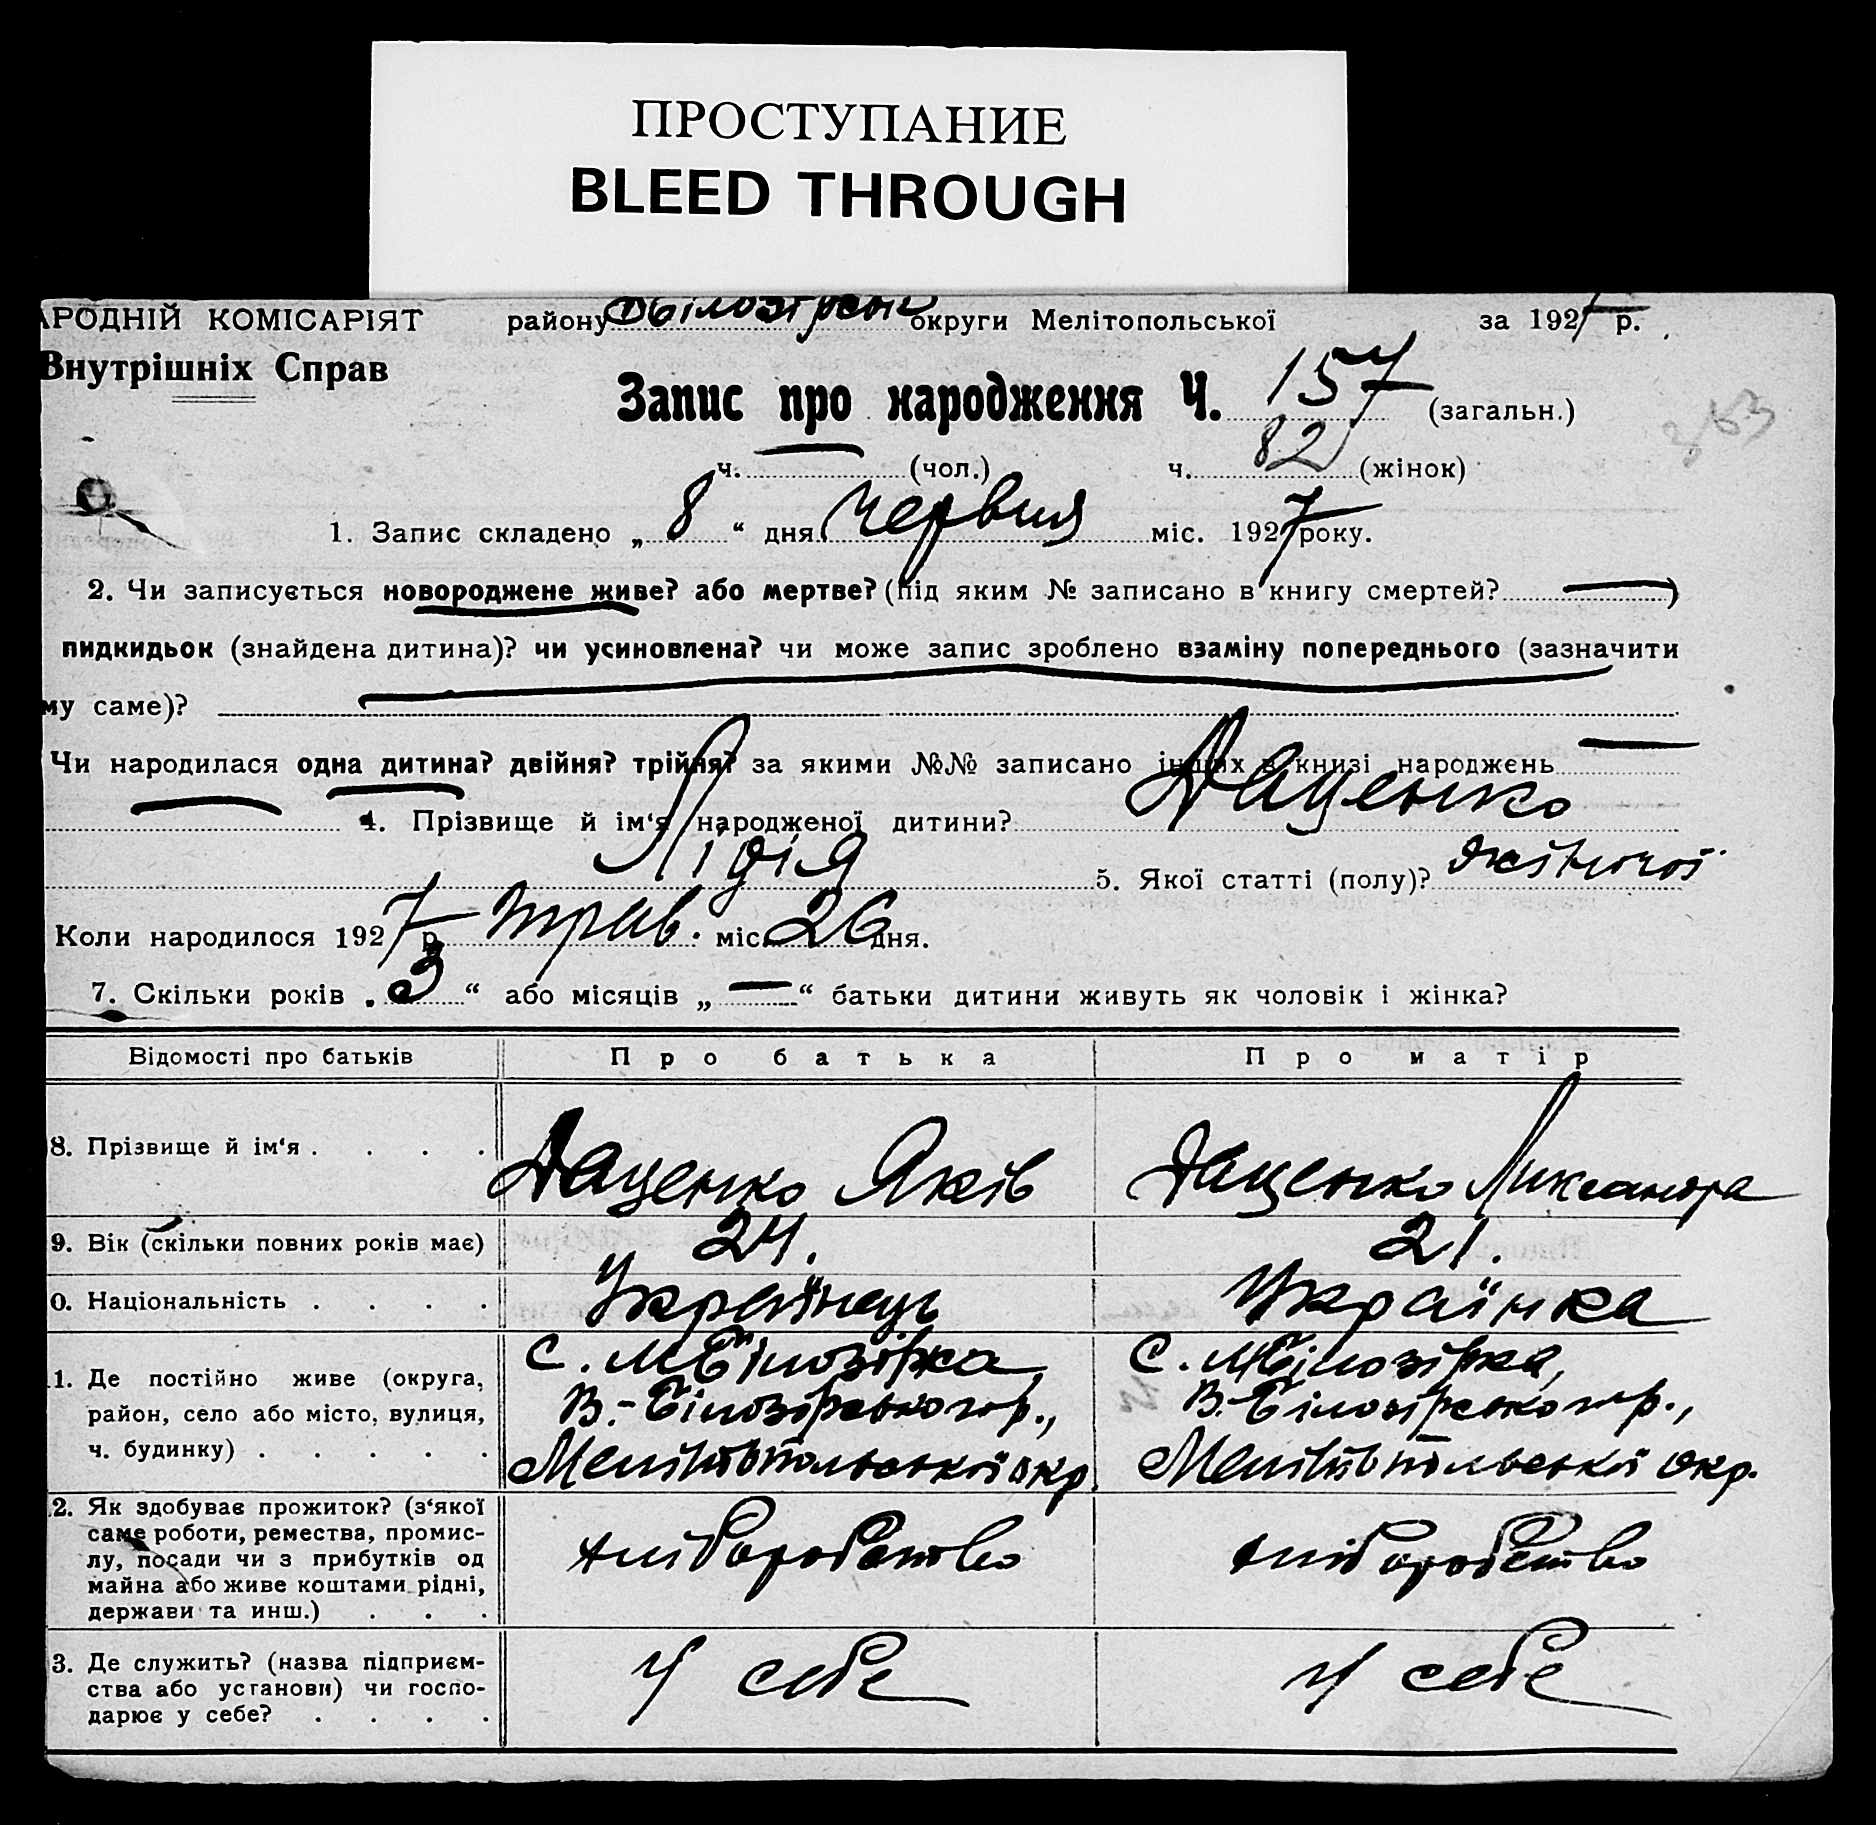 ПРОСТУПАНИЕ
BLEED THROUGH
АРОДНІЙ КОМІСАРІЯТ району округи Мелітопольської за 1927 р.
Внутрішніх Справ
Запис про народження Ч. 157 (загальн.)
ч. — (чол.) ч. 82 (жінок)
1. Запис складено „ 8 “ дня Червня міс. 1927 року.
2. Чи записується новороджене живе? або мертве? (під яким № записано в книгу смертей? — )
пидкидьок (знайдена дитина)? чи усиновлена? чи може запис зроблено взаміну попереднього (зазначити
му саме)? —
Чи народилася одна дитина? двійня? трійня? за якими №№ записано інших в книзі народжень —
— 4. Прізвище й ім‘я народженої дитини? Даценко
Лідія 5. Якої статті (полу)? жіночої
Коли народилося 1927 р. трав. міс. 26 дня.
7. Скільки років „ 3 “ або місяців „ — “ батьки дитини живуть як чоловік і жінка?
Відомості про батьків Про батька Про матір
8. Прізвище й ім‘я . . . . Даценко Яків Даценко Лиександра
9. Вік (скільки повних років має) 24. 21.
0. Національність . . . . Українець Українка
1. Де постійно живе (округа, С. М Білозірка С. М Білозірка,
район, село або місто, вулиця, В.-Білозірського р., В.-Білозірського р.,
ч. будинку) . . . . . Мелітопольської окр. Мелітопольської окр.
2. Як здобуває прожиток? (з‘якої
саме роботи, ремества, промис-
лу, посади чи з прибутків од хліборобство хліборобство
майна або живе коштами рідні,
держави та инш.) . . .
3. Де служить? (назва підприєм-
ства або установи) чи госпо- У себе У себе
дарює у себе? . . . .